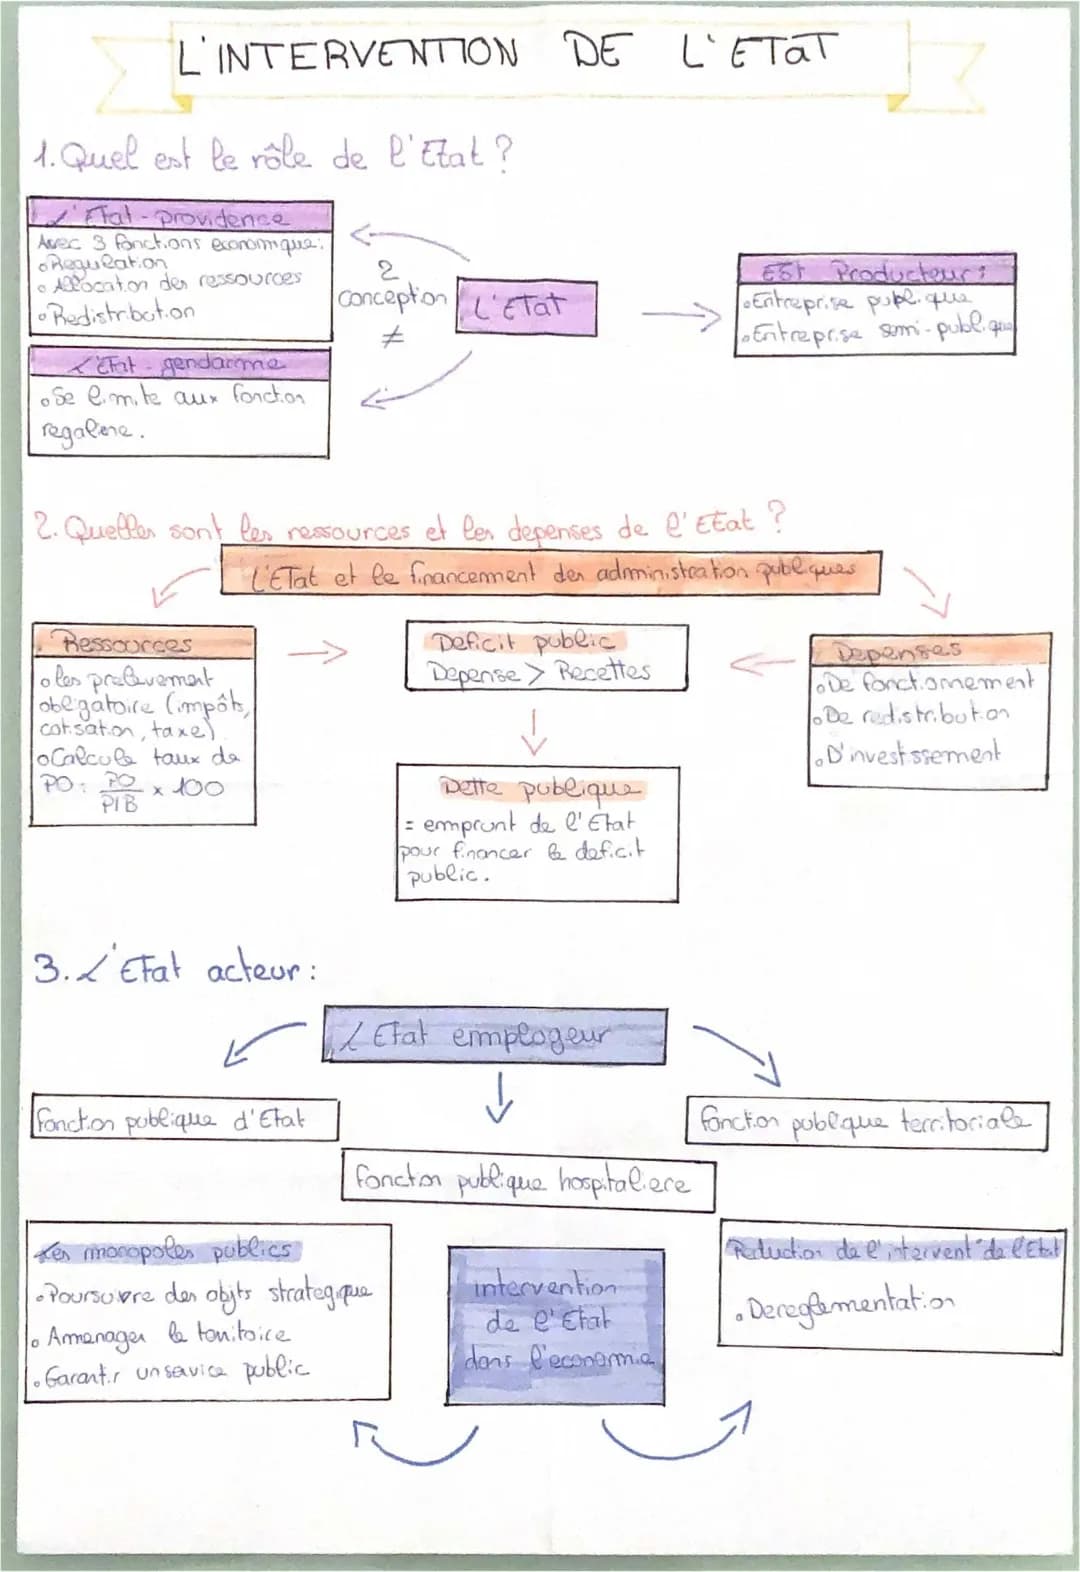 L'INTERVENTION DE L'ETaT
1. Quel est le rôle de l'Etat ?
L'Etat-providence
Avec 3 fonctions economique:
Regulation
Allocation des ressources
Redistribution
L'Etat-gendarme
Se limite aux fonction
regaliene.
2
conception
≠
L'ETaT
Est Producteur:
Entreprise publique
Entreprise semi-publique
2. Quelles sont les ressources et les depenses de l'Etat ?
L'ETat et le financement des administration publiques
Ressources
les prelevement
obligatoire (impôts,
cotisation, taxe)
Calcule taux de
PO: PO/PIB x 100
Deficit public
Depense > Recettes
Dette publique
= emprunt de l'Etat
pour financer le deficit
public.
Depenses
De fonctionnement
De redistribution
D'investissement
3. L'Etat acteur:
L'Etat employeur
Fonction publique d'Etat
Fonction publique hospitaliere
Fonction publique territoriale
Les monopoles publics
Poursuivre des objts strategique
Amenager le territoire
Garantir un service public
intervention
de l'Etat
dans l'economie
Reduction de l'intervent° de l'Etat
Dereglementation